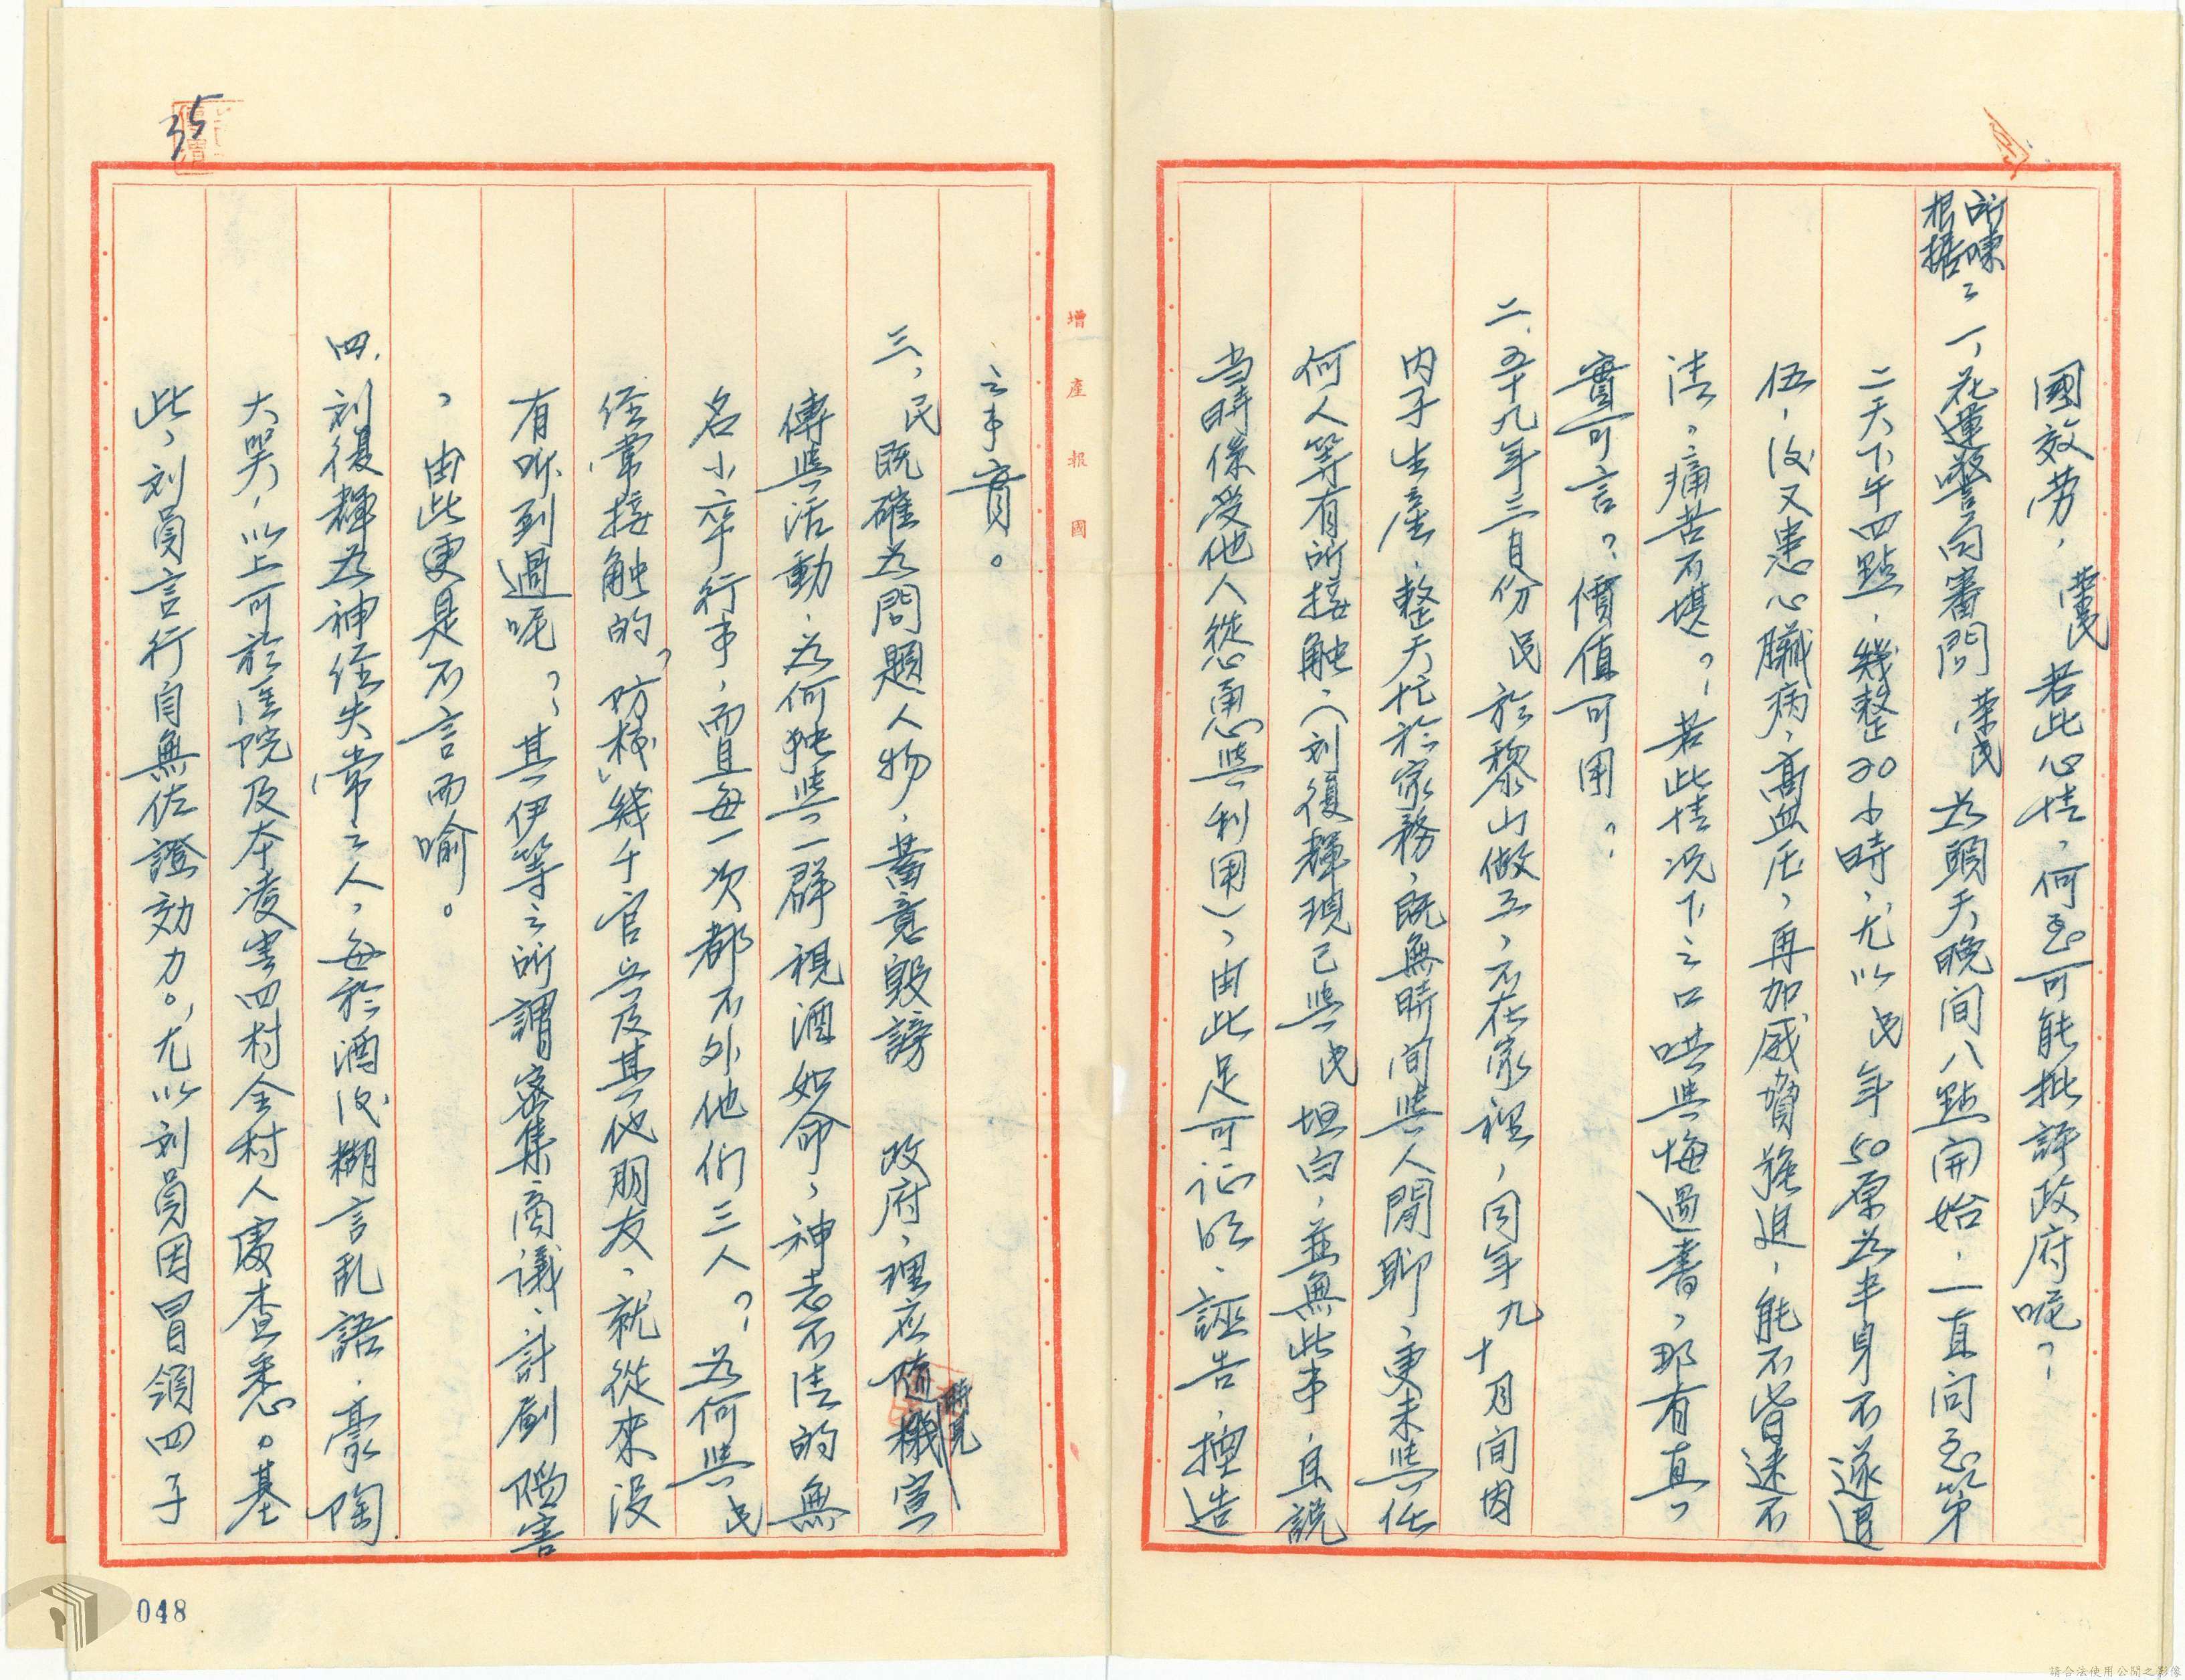 國效勞，榮民若此心情，何至可能批評政府呢？
所陳
根據：一、花蓮警局審問榮民為頭天晚间八點開始，一直问至第
二天下午四點，幾整20小時，尤以民年50原為半身不遂退
伍，后又患心臟病，高血压，再加威脅強迫，能不昏迷不
清，痛苦不堪？若此情况下之口供與悔過書，那有真
實可言？價值可用？
二、五十九年三月份民於黎山做工，不在家裡，同年九十月间因
内子生產，整天忙於家務，既無時间與人閒聊，更未與任
何人等有所接触，（刘復輝現已與民坦白，並無此事，且說
当時係受他人慫恿與利用），由此足可证明，誣告，揑造
之事實。
三、民既確為問題人物，蓄意毀謗政府，理应隨時見機宣
傳與活動，為何独與一群視酒如命，神志不清的無
名小卒行事，而且每一次都不外他們三人？為何與民
经常接触的「防校」幾千官兵及其他朋友，就從來沒
有听到過呢？其伊等之所謂密集商議，計劃陷害
，由此更是不言而喻。
四、刘復輝為神经失常之人，每於酒后糊言乱語，豪陶
大哭，以上可於医院及本凌雲四村全村人處查悉。基
此，刘員言行自無佐證効力。尤以刘員因冒領四子
增產報國
35
048
請合法使用公開之影像